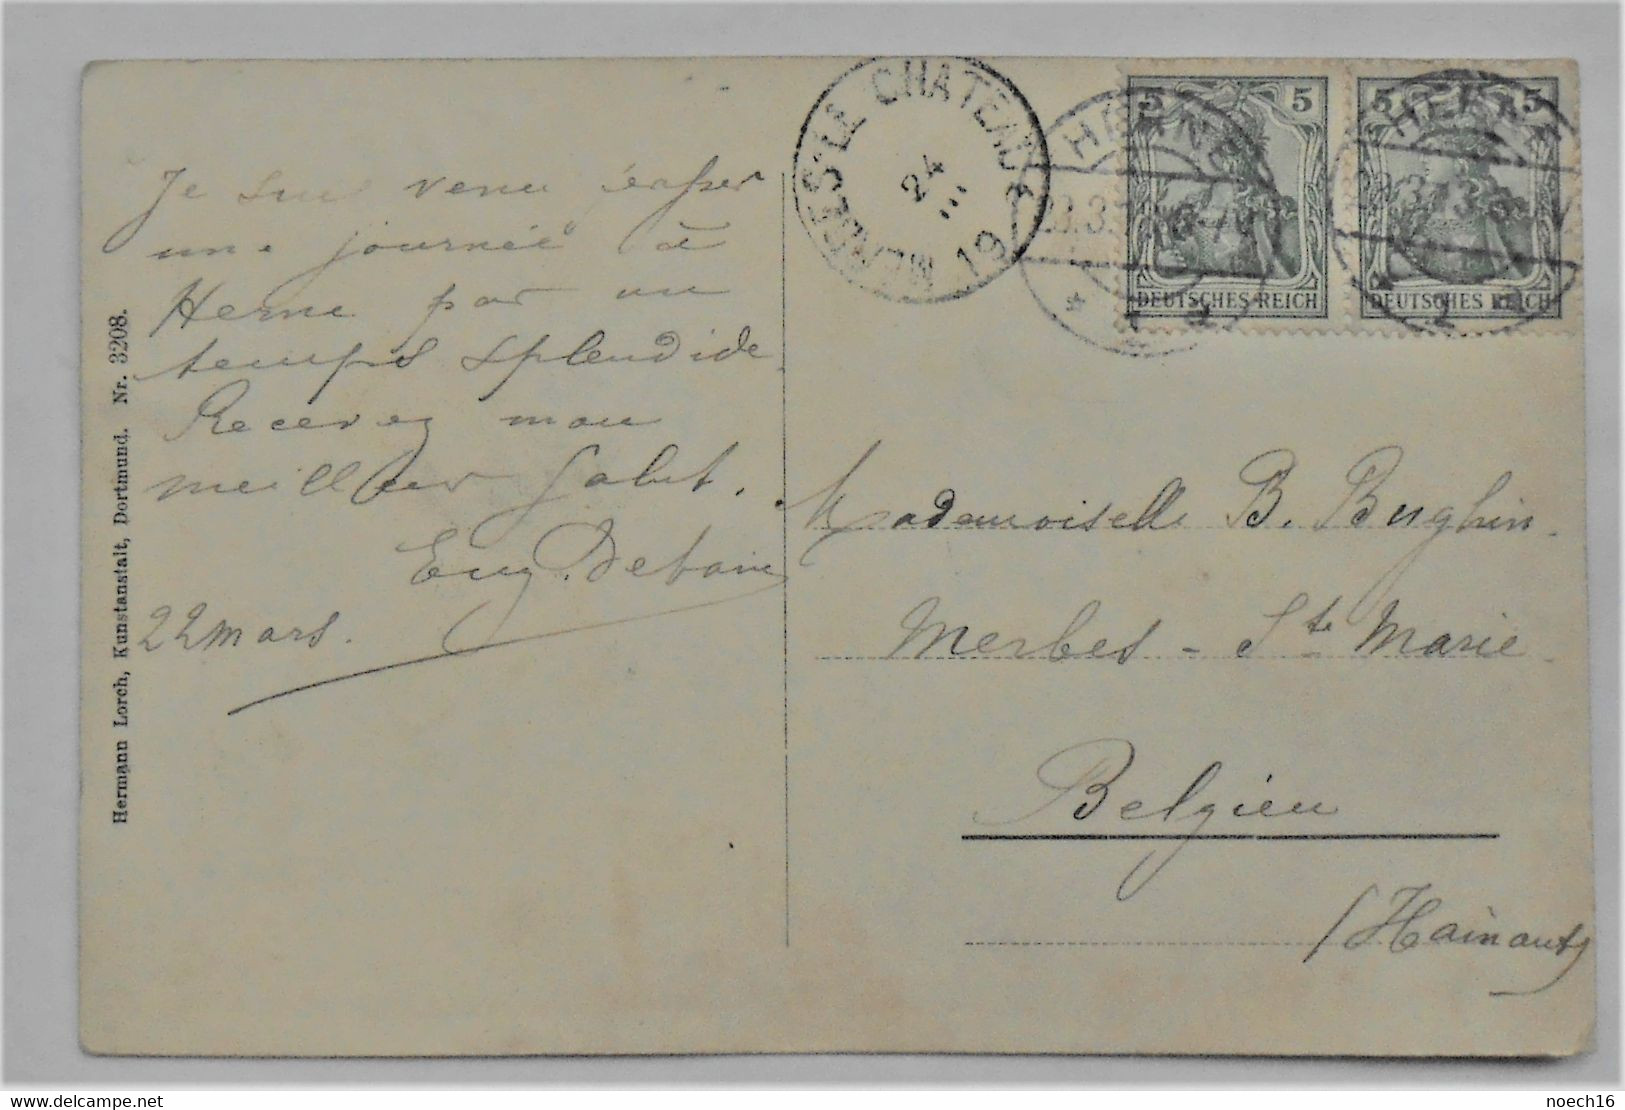 Je suis venu passer
une journée à
Herne par un
temps splendide
Recevez mon
meilleur salut.
Eug. Debain
22 mars.
Hermann Lorch, Kunstanstalt, Dortmund. Nr. 3208.
MERBES-LE-CHATEAU
24
19
HERNE
5 5
DEUTSCHES REICH
HERNE
5 5
DEUTSCHES REICH
Mademoiselle B. Bughin
Merbes - Ste Marie
Belgien
(Hainaut)
noech16